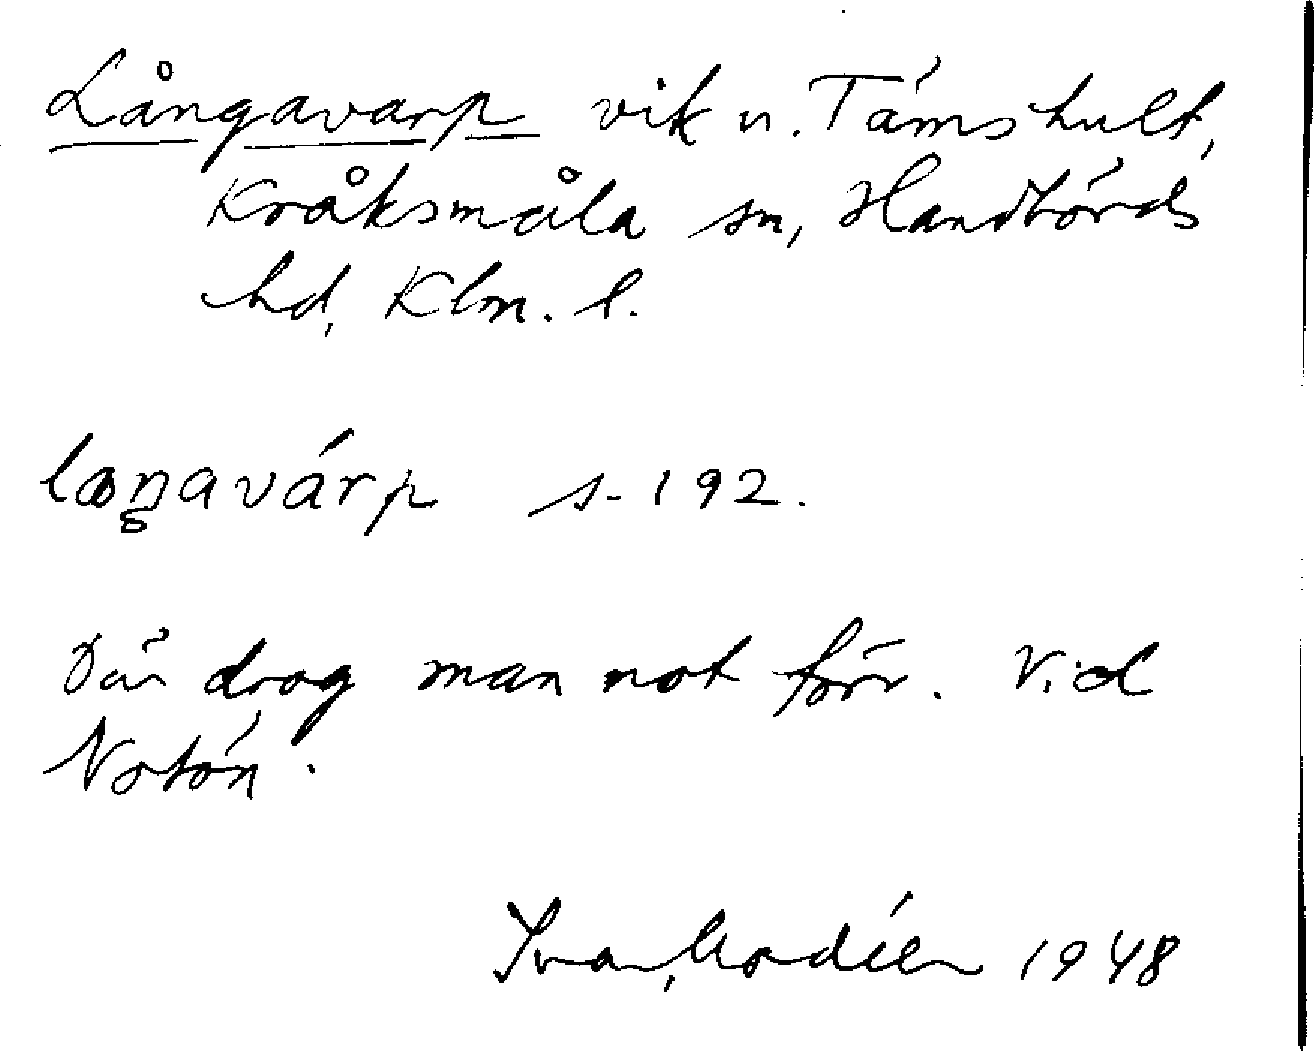 Långavarp vik n. Tämshult,
Kråksmåla sn, Handbörds
hd, Klm. l.
laŋavárp s-192.
Där drog man not förr. Vid
Notön.
Ivar Modéer 1948